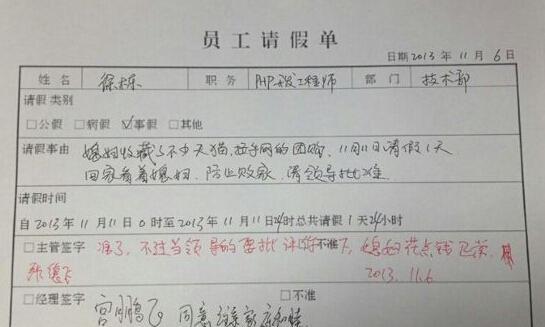 员工请假单
日期 2013 年 11 月 6 日
姓名 徐栋 职务 PHP开发工程师 部门 技术部
请假类别
□公假 □病假 ☑事假 □其他
请假事由 媳妇收藏了不少天猫,拉手网的团购,11月11日请假1天
回家看着媳妇,防止败家,请领导批准.
请假时间
自 2013 年 11 月 11 日 0 时至 2013 年 11 月 11 日 24 时总共请假 1 天 24 小时
□主管签字 准了,不过当领导的要批评你 □不准 下,媳妇花点钱
2013.11.6
□经理签字 宫鹏飞 同意 家庭和睦 □不准